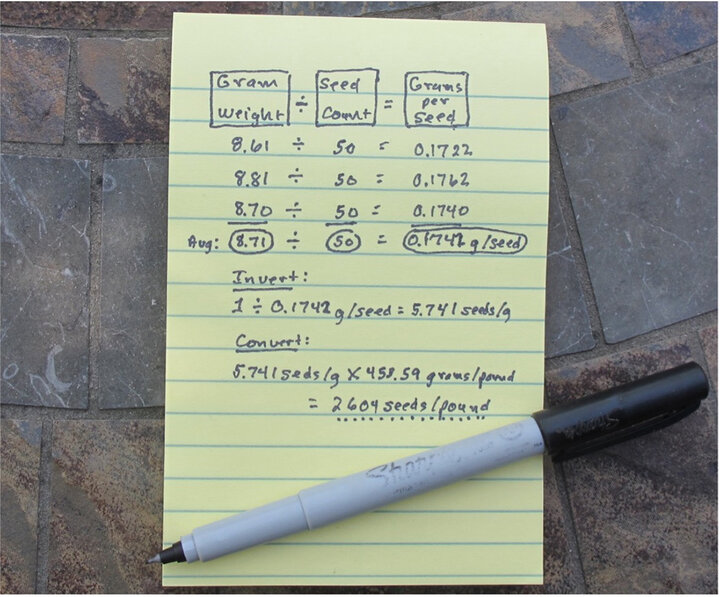 Gram Weight ÷ Seed Count = Grams per Seed
8.61 ÷ 50 = 0.1722
8.81 ÷ 50 = 0.1762
8.70 ÷ 50 = 0.1740
Avg: 8.71 ÷ 50 = 0.1742 g/seed
Invert:
1 ÷ 0.1742 g/seed = 5.741 seeds/g
Convert:
5.741 seds/g X 453.59 grams/pound
= 2604 seeds/pound
Sharpie